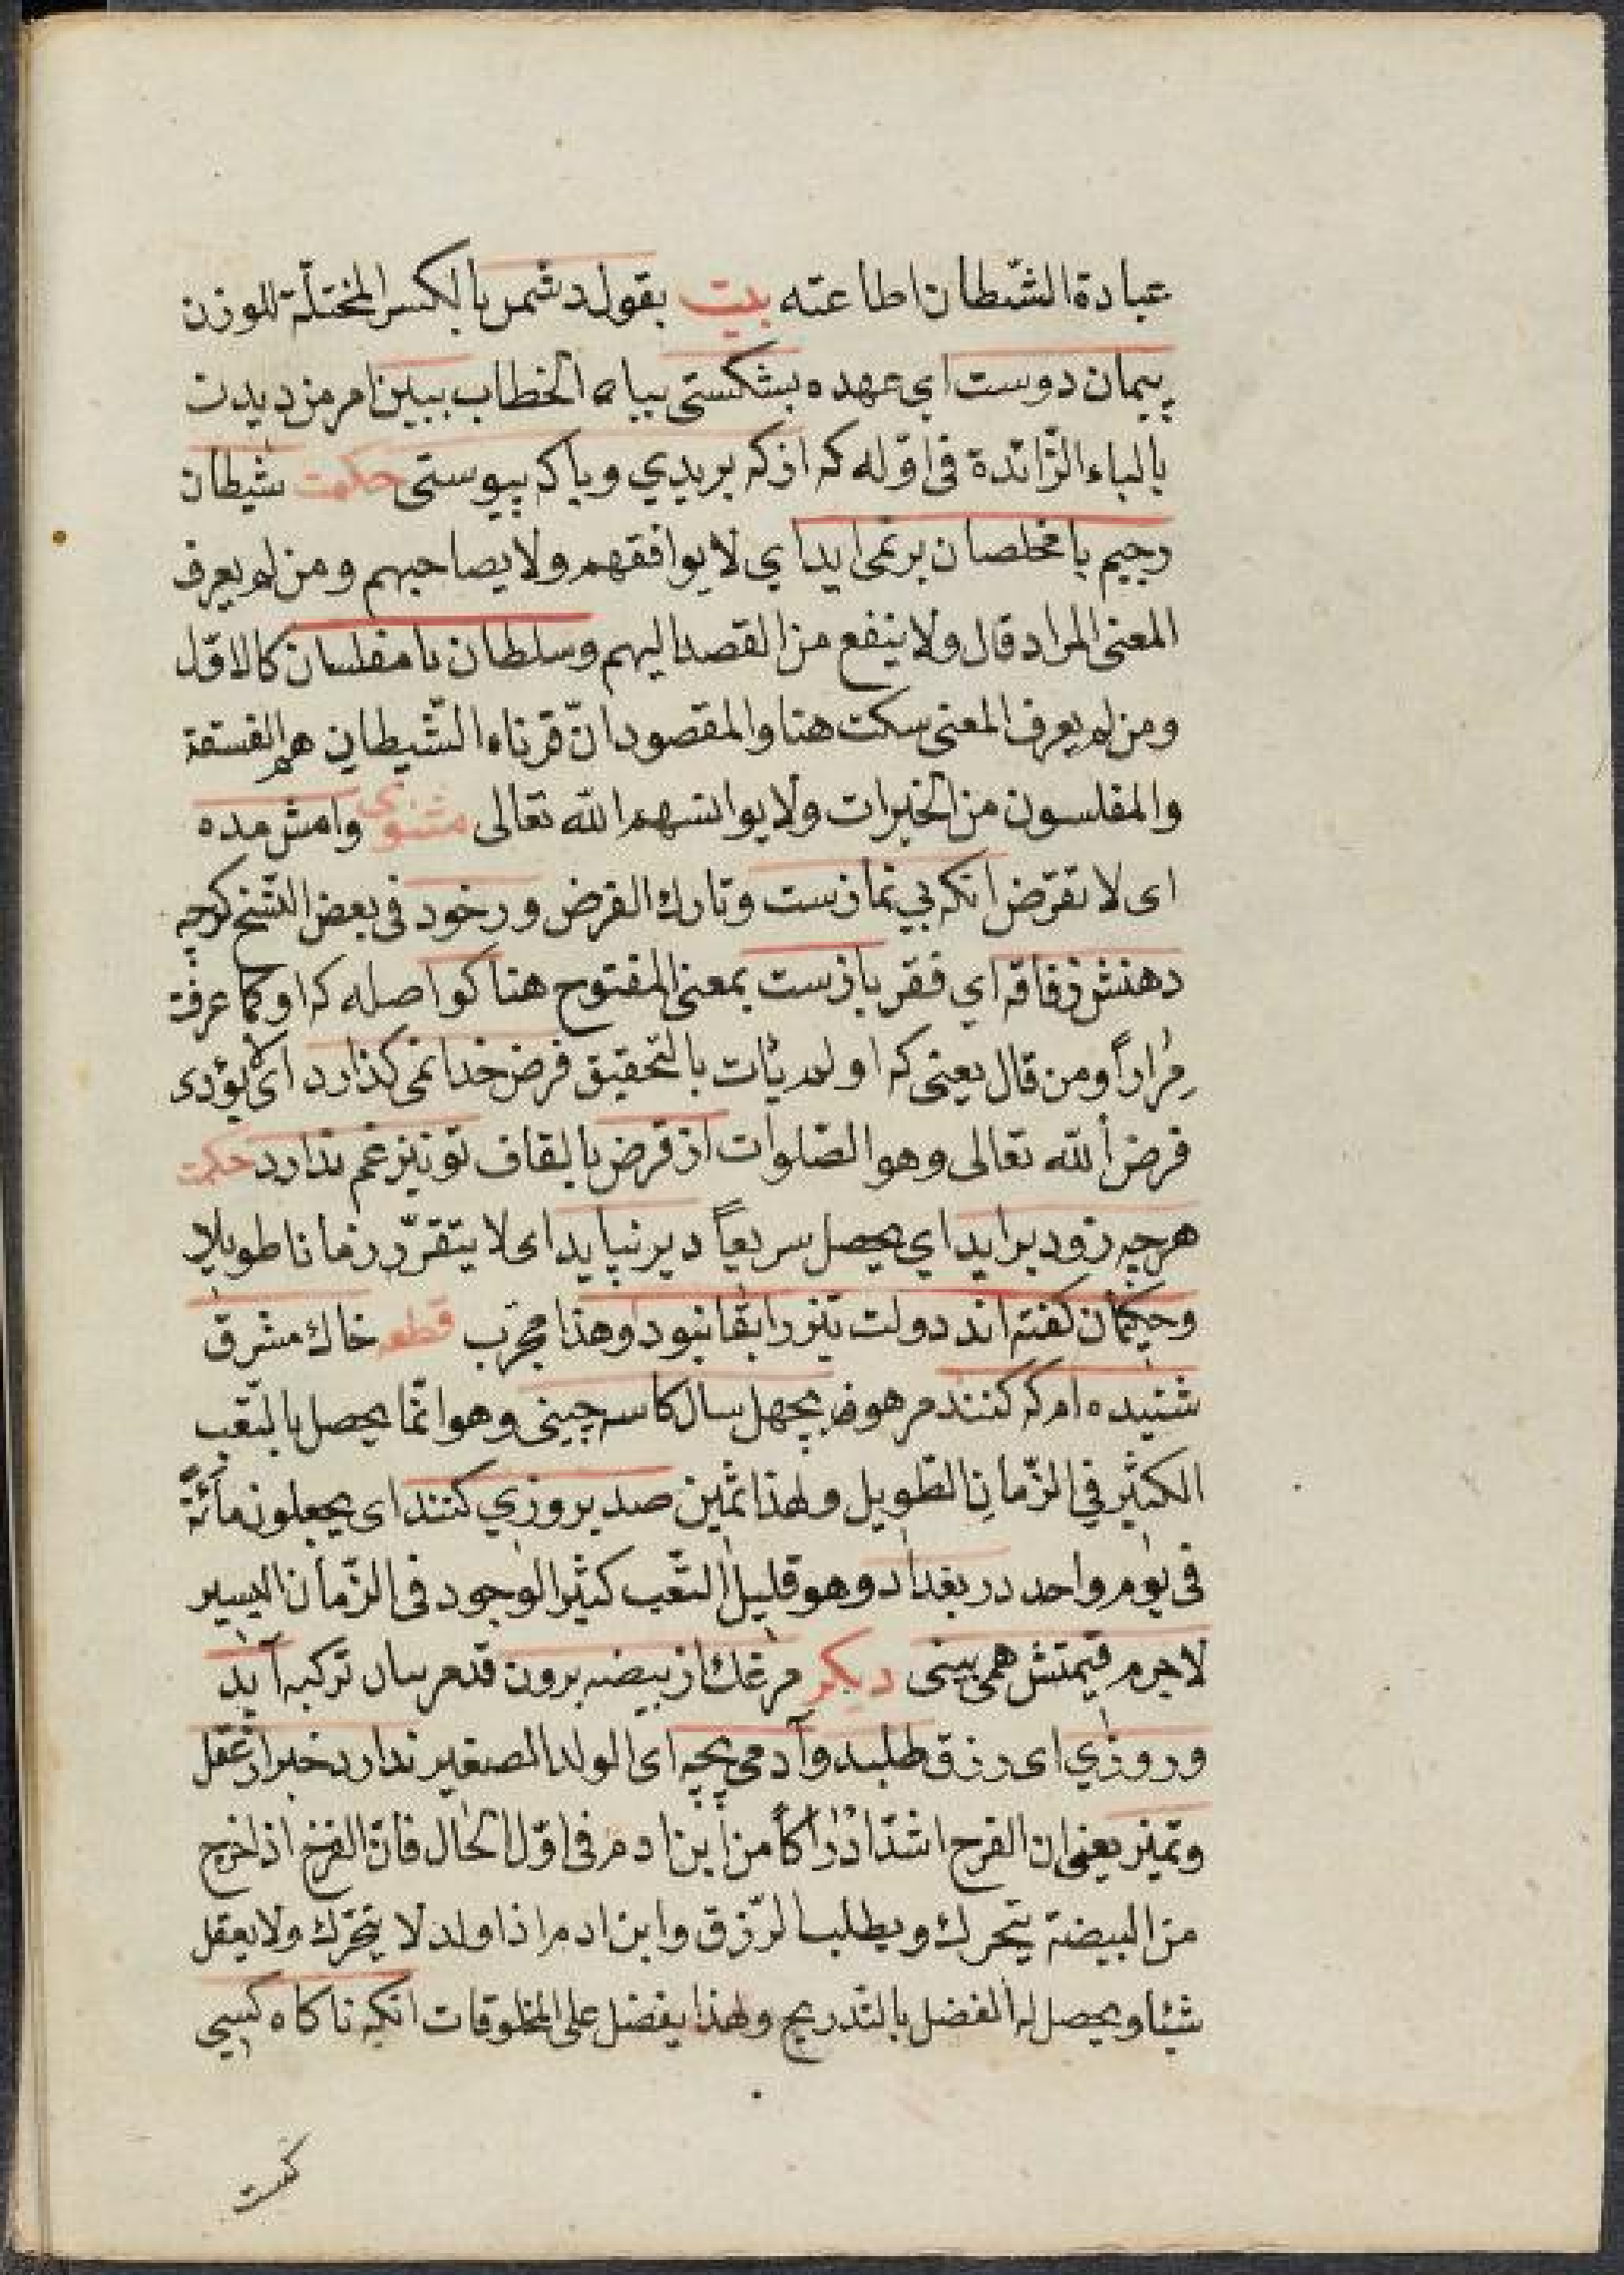 عبادة الشّطان اطاعته بيت بقول دشمن بالكسر المختلّة للوزن
پيمان دوست اي عهده بشكستى بياء الخطاب ببين امر من ديدن
بالباء الزّائدة فى اوّله كه از كه بريدي وباكه پيوستى حكمت شيطان
رجيم با مخلصان برنمى ايد اي لا يوافقهم ولا يصاحبهم ومن لم يعرف
المعنى المراد قال ولا ينفع من القصد اليهم وسلطان با مفلسان كالاوّل
ومن لم يعرف المعنى سكت هنا والمقصود انّ قرناء الشّيطان هم الفسقة
والمفلسون من الخيرات ولا يوانسهم الله تعالى مثنوى وامش مده
اى لا تقرض انكه بي نمازست وتارك الفرض ورخود فى بعض النّسخ كرچه
دهنش ز فاقه اي فقر بازست بمعنى المفتوح هنا كو اصله كه او كما عرفت
مراراً ومن قال يعنى كه او لم يأت بالتحقيق فرض خدا نمى كذارد اى لا يؤدى
فرض الله تعالى وهو الصّلوات از قرض بالقاف تو نيز غم ندارد حكمت
هرچه زود برايد اي يحصل سريعاً دير نپايد اى لا يتقرّر زمانا طويلا
وحكيمان كفته اند دولت تيز را بقا نبود وهذا مجرّب قطعه خاك مشرق
شنيده ام كه كنند مرهون بچهل سال كاسه چينى وهو انّما يحصل بالتّعب
الكثير في الزّمان الطّويل ولهذا ثمين صد بروزي كنند اى يجعلون مأئة
فى يوم واحد در بغداد وهو قليل التّعب كثير الوجود فى الزّمان اليسير
لاجرم قيمتش همى بينى ديكر مرغك از بيضه برون قدم سان تركبه آيد
وروزي اى رزق طلبد وآدمي بچه اى الولد الصغير ندارد خبر از عقل
وتميز يعنى ان الفرخ اشدّ ادراكاً من ابن ادم فى اوّل الحال فانّ الفرخ اذا خرج
من البيضة يتحرك ويطلب الرّزق وابن ادم اذا ولد لا يتحرّك ولا يعقل
شيئا ويحصل له الفضل بالتدريج ولهذا يفضل على المخلوقات انكه ناكاه كسي
كست